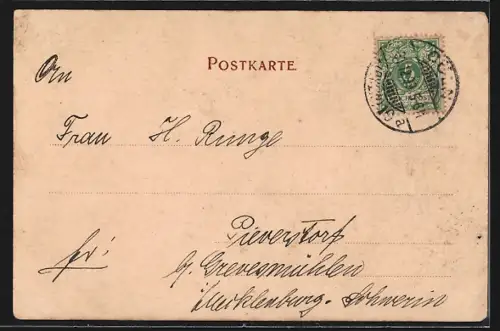 POSTKARTE.
An
Frau H. Runge
Pieverstorf
fr:
b. Grevesmühlen
i/Mecklenburg-Schwerin